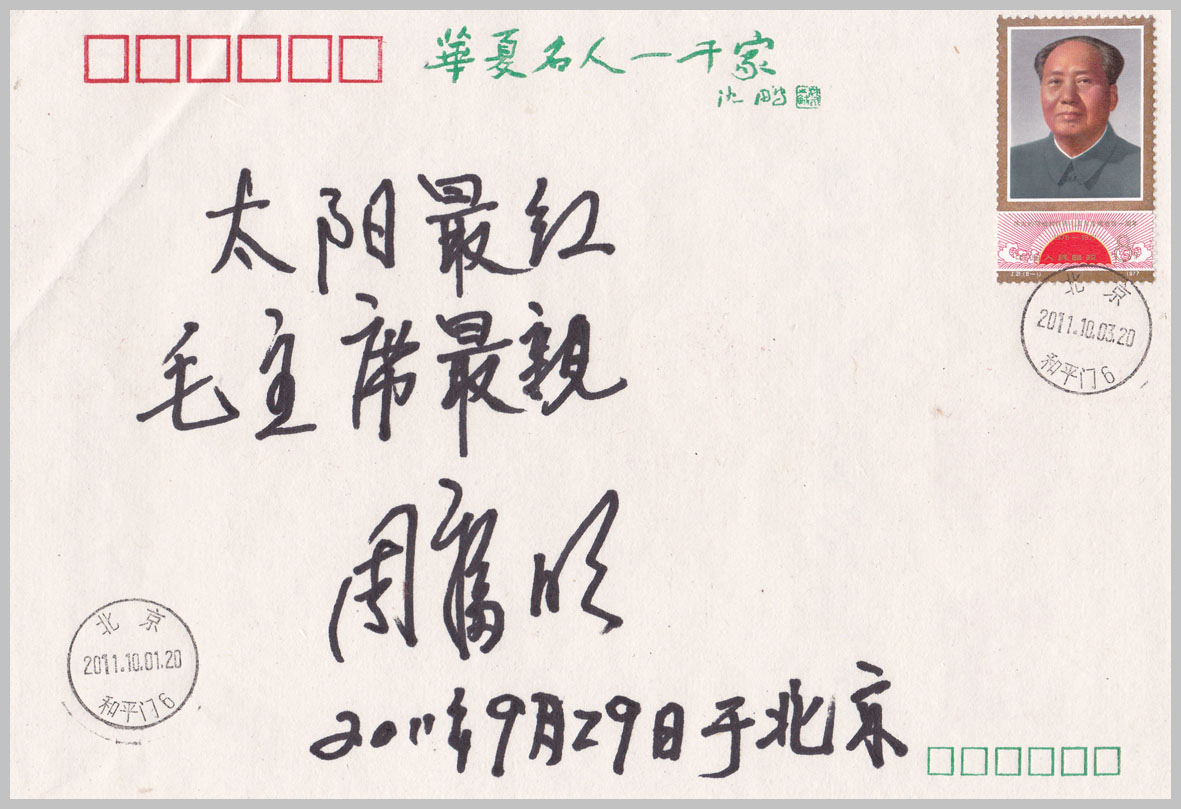 華夏名人一千家
沈鹏
太阳最红
毛主席最親
周
2011年9月29日于北京
北京
2011.10.03.20
和平门6
北京
2011.10.01.20
和平门6
J.21.(6-1)
1977